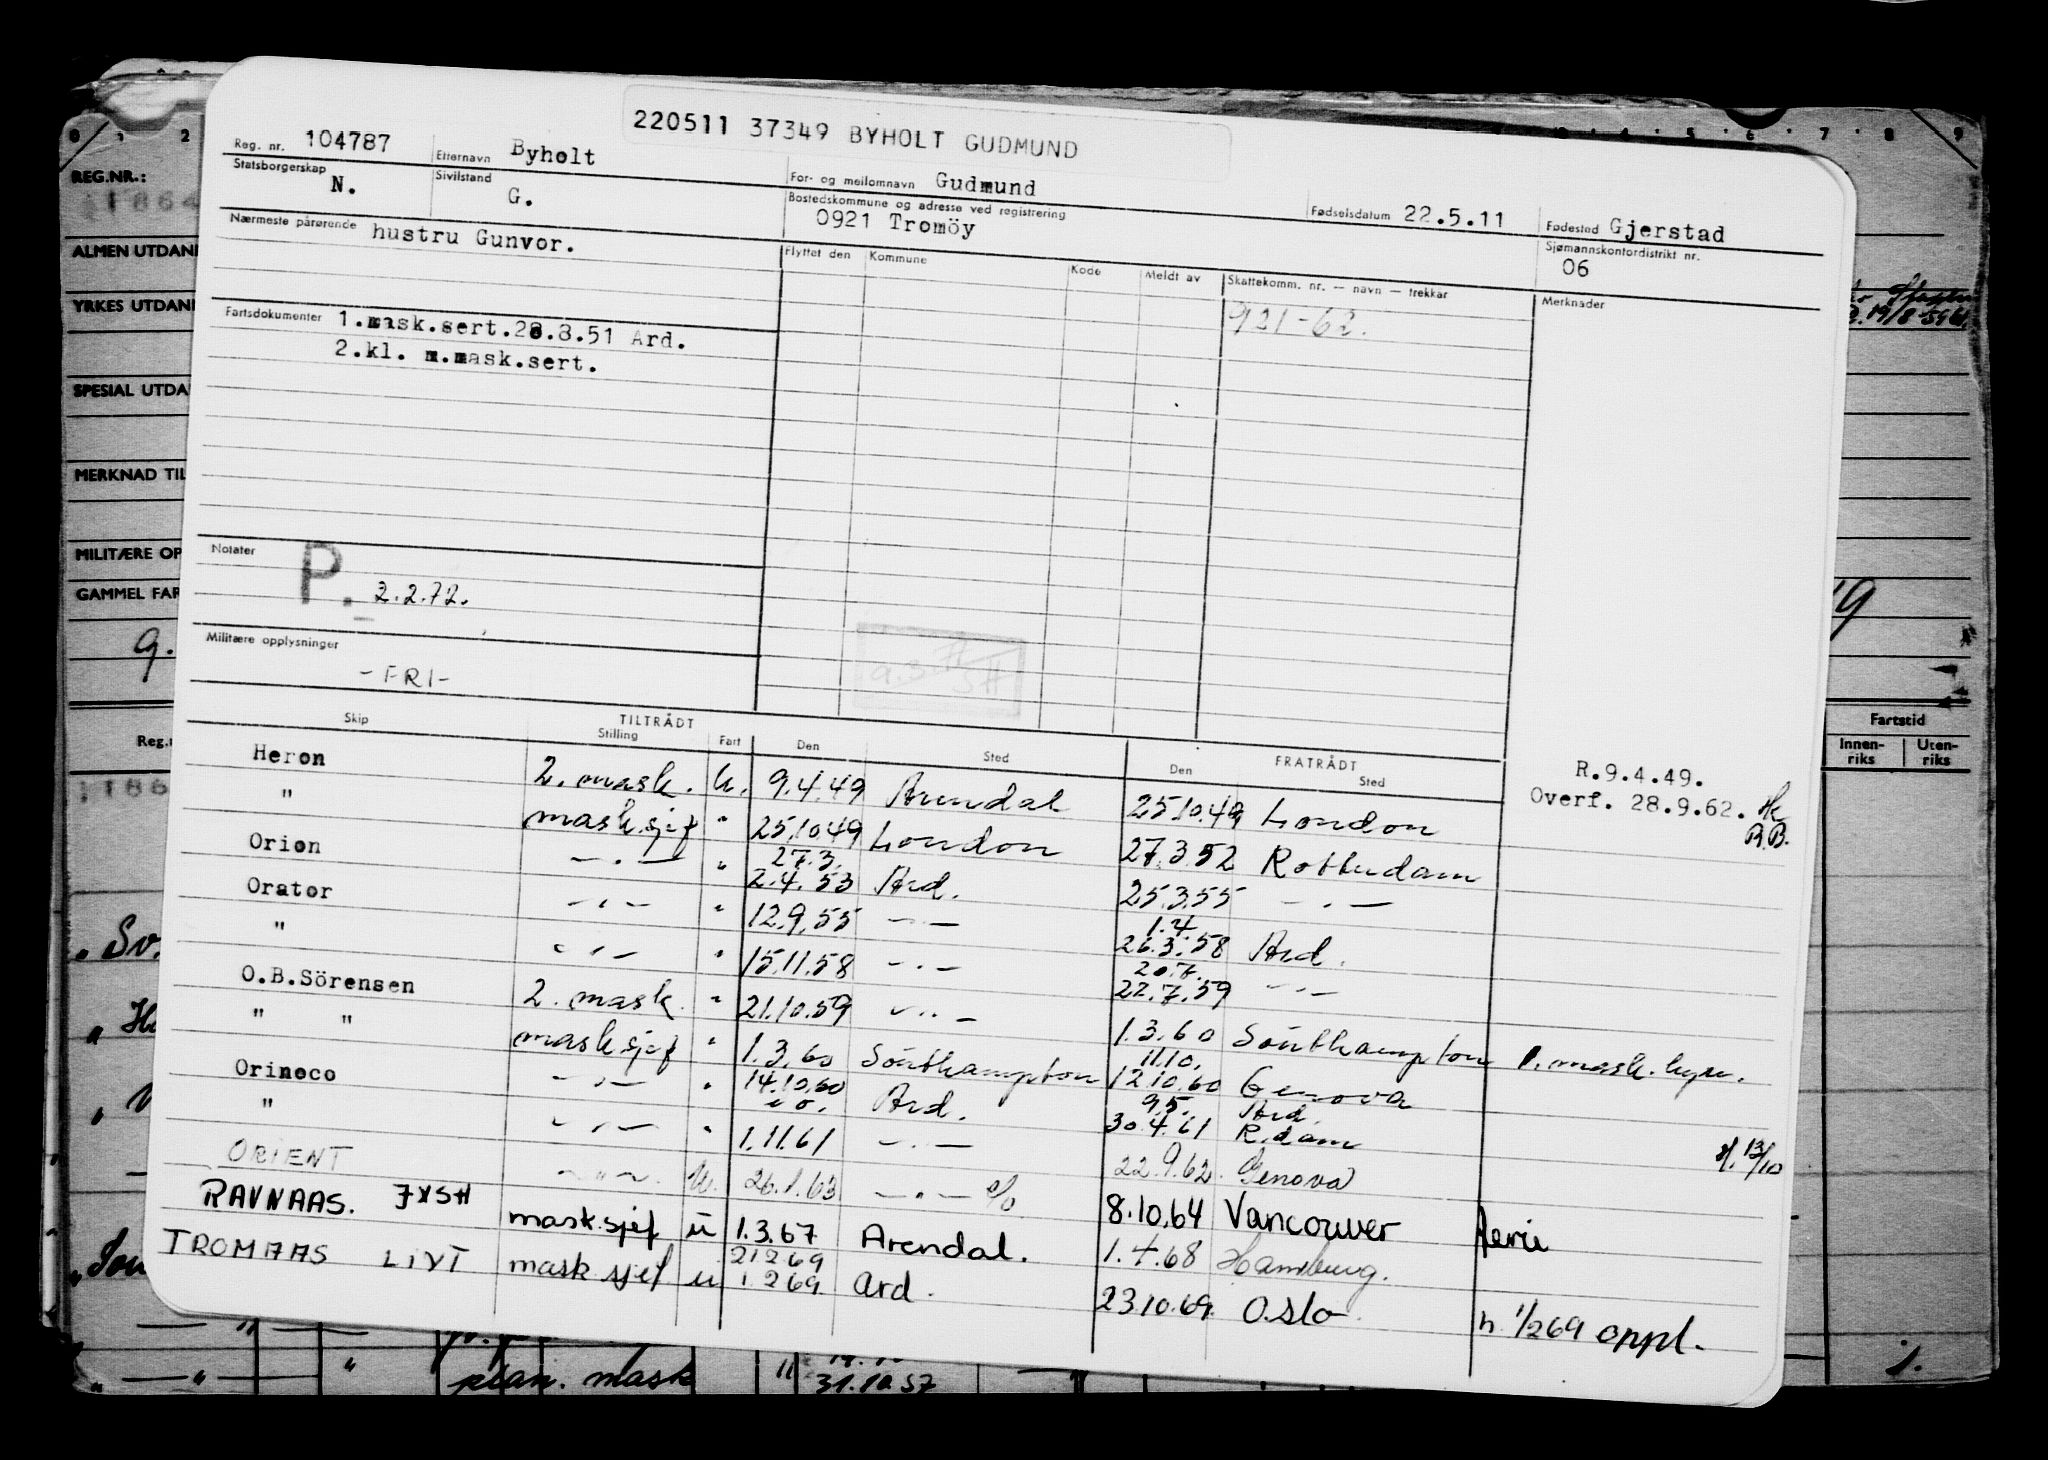 220511 37349 BYHOLT GUDMUND
Reg. nr. 104787 Etternavn Byholt For- og mellomnavn Gudmund Fødselsdatum 22.5.11 Fødested Gjerstad
Statsborgerskap N. Sivilstand G. Bostedskommune og adresse ved registrering 0921 Tromöy Sjømannskontordistrikt nr. 06
Nærmeste pårørende hustru Gunvor. Flyttet den Kommune Kode Meldt av Skattekomm. nr. — navn — trekkar Merknader
921-62.
Fartsdokumenter 1.mask.sert.28.8.51 Ard.
2.kl. m.mask.sert.
Notater P. 2.2.72.
Militære opplysninger
-FRI-
TILTRÅDT FRATRÅDT
Skip Stilling Fart Den Sted Den Sted
Heron 2. mask. u. 9.4.49 Arendal 25.10.49 London R.9.4.49.
" mask.sjef " 25.10.49 London 27.3.52 Rotterdam Overf. 28.9.62.
B.B.
27.3.
Orion — " — " 2.4.53 Ard. 25.3.55 — " —
1.4
Orator — " — " 12.9.55 — " — 26.3.58 Ard.
20.7.
" — " — " 15.11.58 — " — 22.7.59 — " —
O.B.Sörensen 2. mask. " 21.10.59 — " — 1.3.60 Southampton 1. mask. hyre.
11.10.
" " mask sjef " 1.3.60 Southampton 12.10.60 Genova
14.10.60 9.5. Ard.
Orinoco — " — " Ard. 30.4.61 R.dam
" — " — " 1.11.61 — " — 22.9.62 Genova
ORIENT — " — u. 26.1.63 — " — 8.10.64 Vancouver ferie
RAVNAAS. JXSH mask.sjef u 1.3.67 Arendal. 1.4.68 Hamburg.
21269
TROMAAS LIVT mask sjef u 1.2.69 Ard. 23.10.69. Oslo h. 1/269 oppl.
REG.NR.:
ALMEN UTDAN
YRKES UTDAN
SPESIAL UTDA
MERKNAD TIL
MILITÆRE OP
GAMMEL FAR
9.
Reg.
Fartstid
Innen-riks Uten-riks
19/8-59
" Sv.
plan. mask " 31.10.57
1.